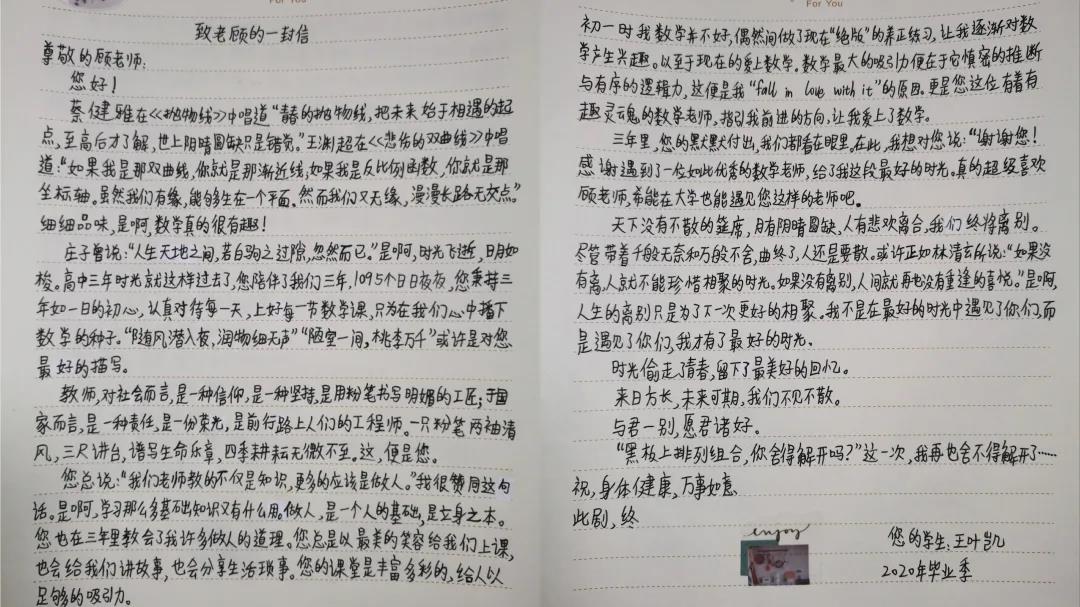 For You
致老顾的一封信
尊敬的顾老师:
您好!
蔡健雅在《抛物线》中唱道“青春的抛物线,把未来始于相遇的起
点,至高后才了解,世上阴晴圆缺只是错觉。”王渊超在《悲伤的双曲线》中唱
道:“如果我是那双曲线,你就是那渐近线,如果我是反比例函数,你就是那
坐标轴。虽然我们有缘,能够生在一个平面。然而我们又无缘,漫漫长路无交点。”
细细品味,是啊,数学真的很有趣!
庄子曾说:“人生天地之间,若白驹之过隙,忽然而已。”是啊,时光飞逝,日月如
梭。高中三年时光就这样过去了,您陪伴了我们三年,1095个日日夜夜,您秉持三
年如一日的初心,认真对待每一天,上好每一节数学课,只为在我们心中播下
数学的种子。“随风潜入夜,润物细无声”“陋室一间,桃李万千”或许是对您
最好的描写。
教师,对社会而言,是一种信仰,是一种坚持,是用粉笔书写明媚的工匠;于国
家而言,是一种责任,是一份荣光,是前行路上人们的工程师。一只粉笔两袖清
风,三尺讲台,谱写生命乐章,四季耕耘无微不至。这,便是您。
您总说:“我们老师教的不仅是知识,更多的应该是做人。”我很赞同这句
话。是啊,学习那么多基础知识又有什么用。做人,是一个人的基础,是立身之本。
您也在三年里教会了我许多做人的道理。您总是以最美的笑容给我们上课,
也会给我们讲故事,也会分享生活琐事。您的课堂是丰富多彩的,给人以
足够的吸引力。
For You
初一时我数学并不好,偶然间做了现在“绝版”的养正练习,让我逐渐对数
学产生兴趣。以至于现在的爱上数学。数学最大的吸引力便在于它慎密的推断
与有序的逻辑力,这便是我“fall in love with it”的原因。更是您这位有着有
趣灵魂的数学老师,指引我前进的方向,让我爱上了数学。
三年里,您的默默付出,我们都看在眼里。在此,我想对您说:“谢谢您!
感谢遇到一位如此优秀的数学老师,给了我这段最好的时光。真的超级喜欢
顾老师,希能在大学也能遇见您这样的老师吧。
天下没有不散的筵席,月有阴晴圆缺,人有悲欢离合,我们终将离别。
尽管带着千般无奈和万般不舍,曲终了,人还是要散。或许正如林清玄所说:“如果没
有离,人就不能珍惜相聚的时光。如果没有离别,人间就再也没有重逢的喜悦。”是啊,
人生的离别只是为了下一次更好的相聚。我不是在最好的时光中遇见了你们,而
是遇见了你们,我才有了最好的时光.
时光偷走了青春,留下了最美好的回忆。
来日方长,未来可期,我们不见不散。
与君一别,愿君诸好。
“黑板上排列组合,你舍得解开吗?”这一次,我再也舍不得解开了……
祝,身体健康,万事如意
此剧,终
enjoy
您的学生:王叶凯
2020年毕业季